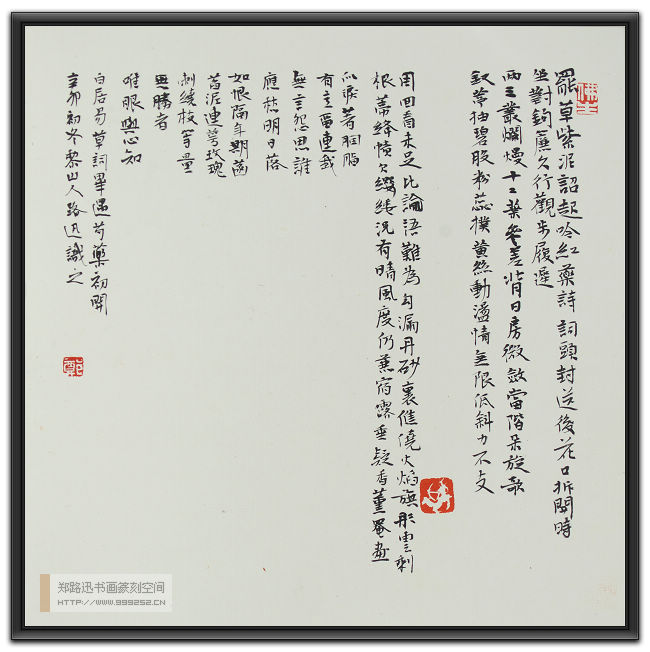 罷草紫泥詔起吟紅藥詩詞頭封送後花口拆開時
坐對鈎簾久行觀步履遲
兩三叢爛熳十二葉參差背日房微斂當階朵旋欹
釵葶抽碧股粉蕊撲黃絲動盪情無限低斜力不支
周回看未足比論語難為勾漏丹砂裏僬僥火焰旗彤雲剩
根蒂絳幘欠纓緌況有晴風度仍兼宿露垂疑香薰罨畫
似淚著胭脂
有意留連我
無言怨思誰
應愁明日落
如恨隔年期菡
萏泥連萼玫瑰
刺繞枝等量
無勝者
唯眼與心知
白居易草詞畢遇芍藥初開
辛卯初冬黎山人路迅識之
郑路迅书画篆刻空间
HTTP://WWW.999252.CN